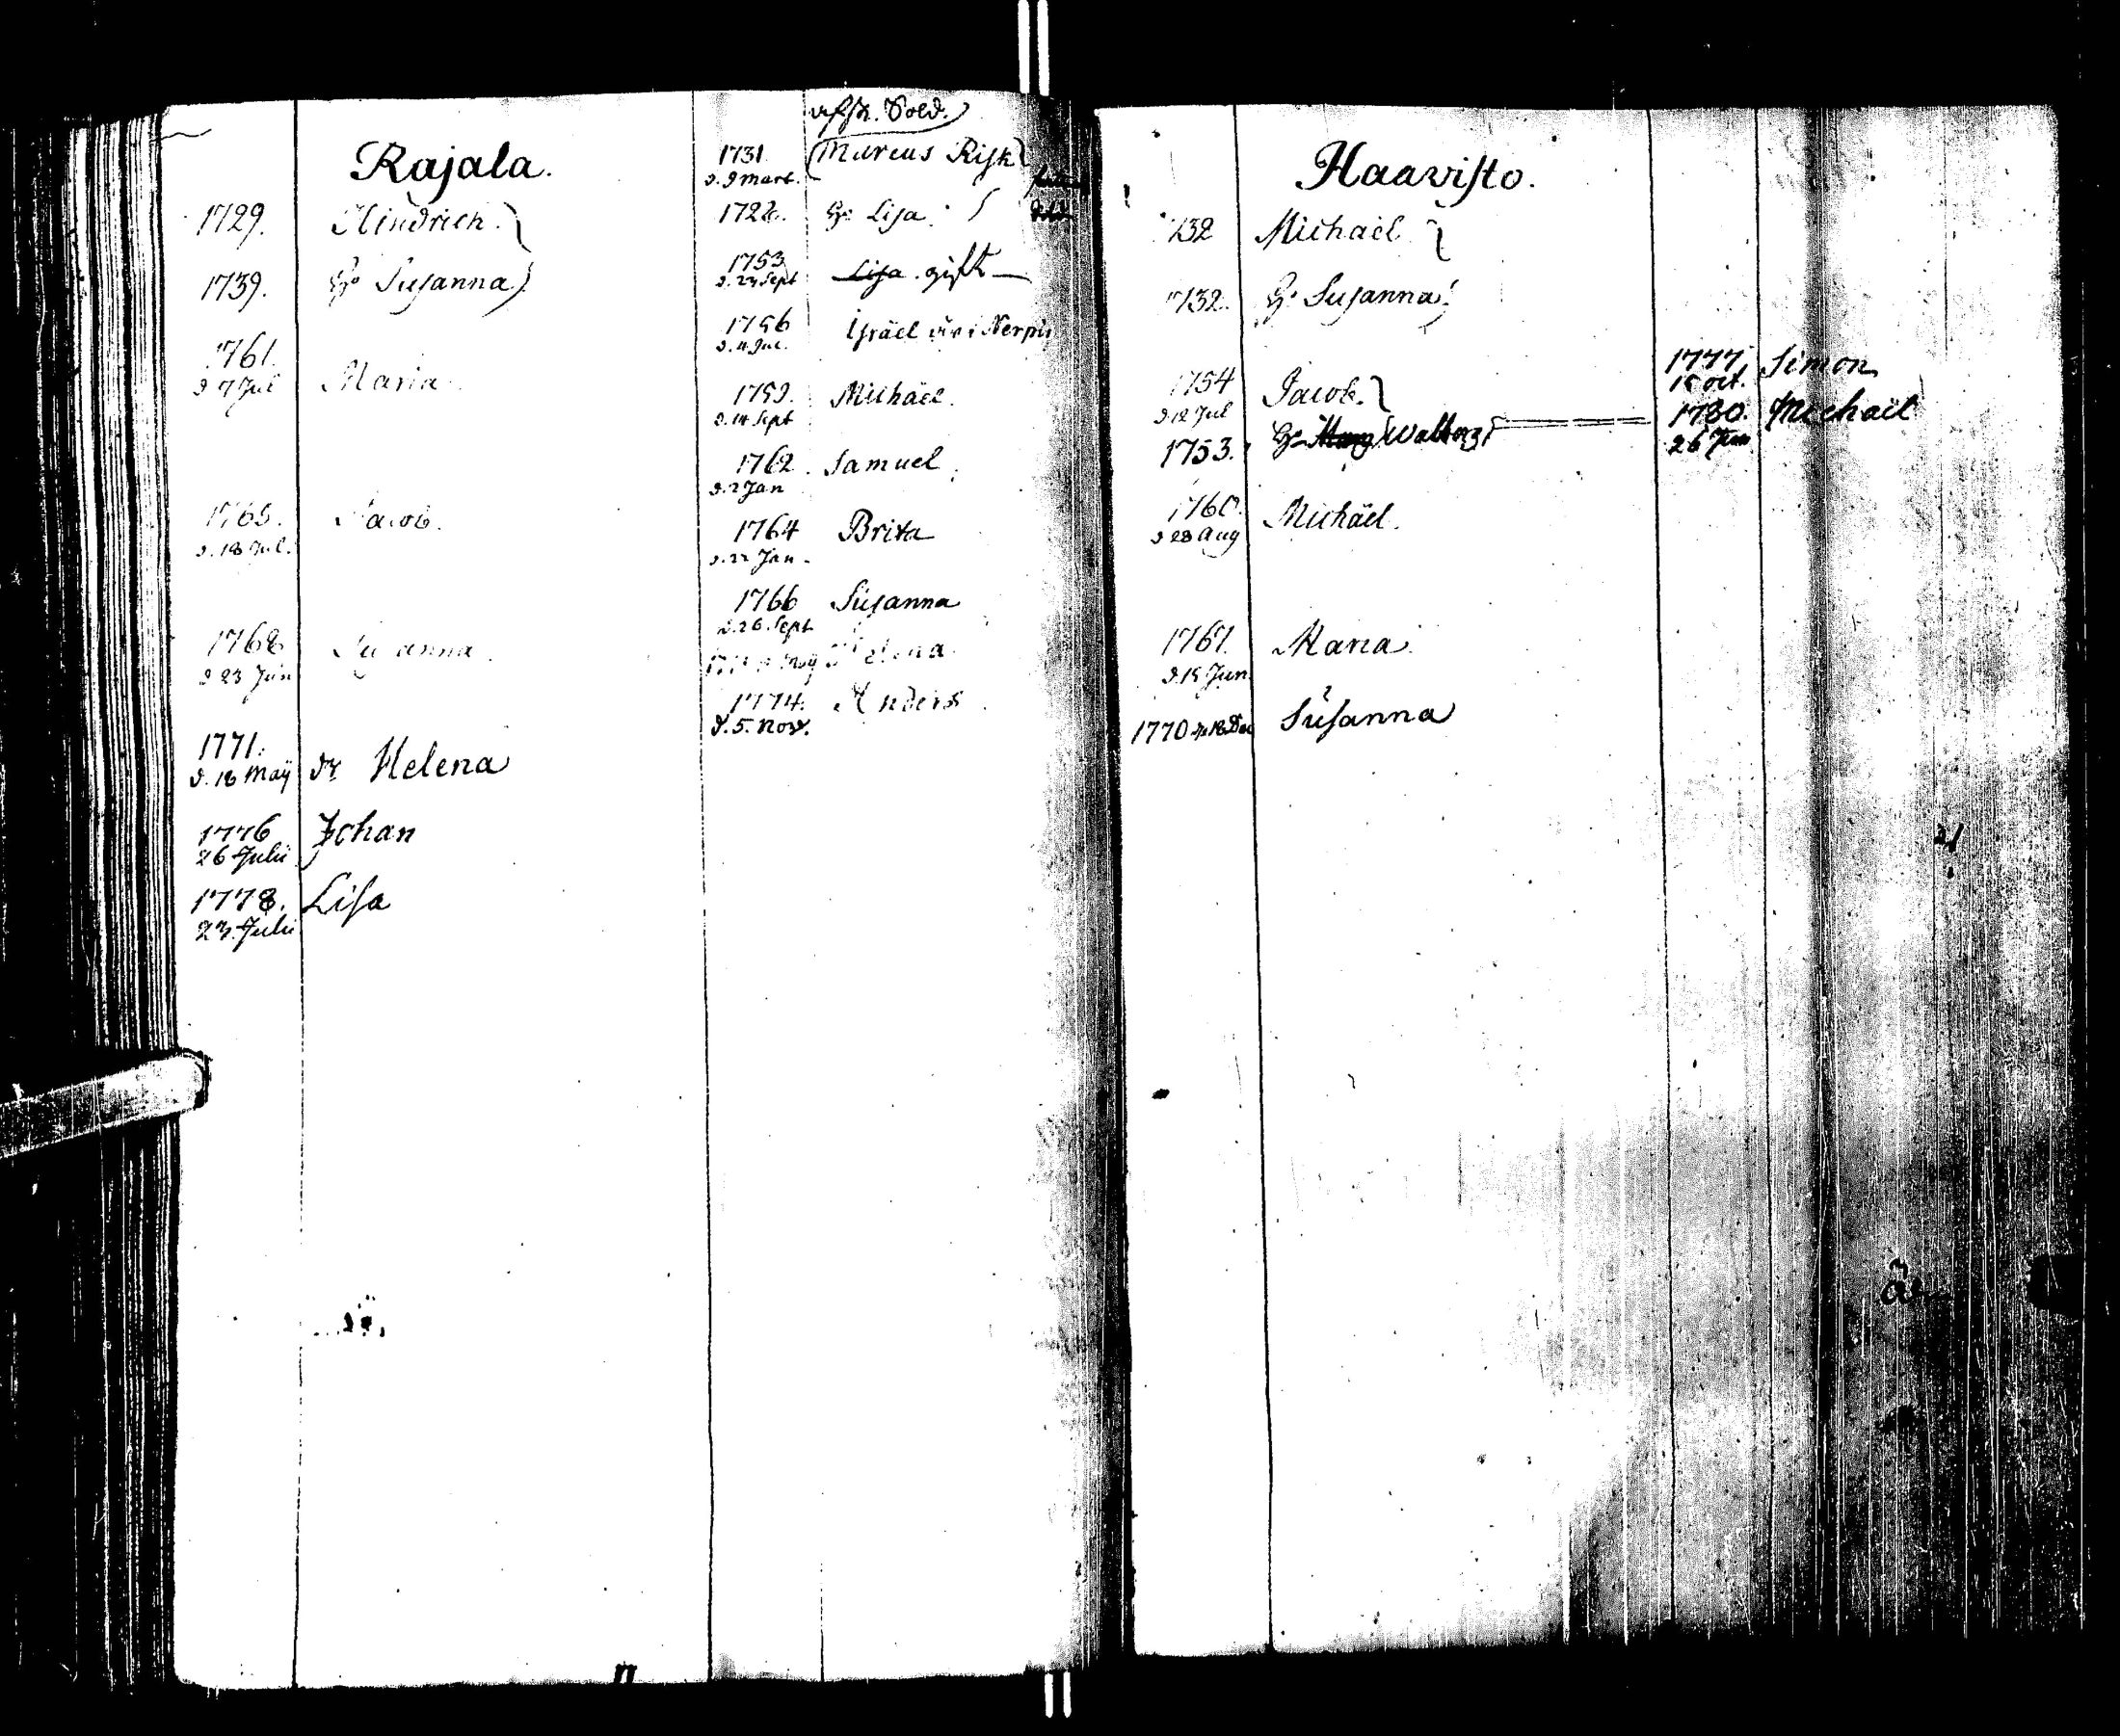 Rajala.
1729. Hindrich.
1739. H: Susanna
1761.
d 7 Jul Maria
1765. Jacob.
d. 18 Jul.
1768 Susanna
d 23 Jun
1771.
d. 18 Maÿ dr Helena
1776 Johan
26 Julii
1778. Lisa
23. Julii
afsk. Sold.
1731. Marcus Risk
d. 9 Mart.
172 H: Lisa
1753 Lisa gift
d. 23 Sept
1756 Israël är i Nerpis
1759. Michäel.
d. 14 Sept
1762. Samuel
d. 2 Jan
1764 Brita
d. 22 Jan.
1766 Susanna
d. 26. Sept
Helena
1774. Anders
d. 5. Nov.
Haavisto.
1732 Michaël
1732. H: Susanna
1754 Jacob.
d 12 Jul
1753. H: Walborg
1760. Michäel.
d 28 Aug
1767. Maria
d. 15 Jun.
1770 Susanna
1777. Simon
15 oct.
1780. Michaël
26 Jun